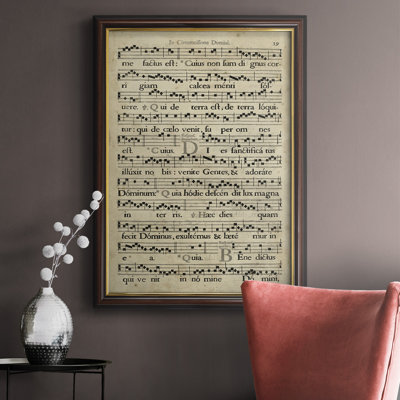 In Circumcisione Domini. 19
me factus est: * Cuius non sum dignus cor
rigiam calceamenti sol-
uere. ℣. Qui de terra est, de terra loqui-
tur: qui de cœlo venit, super omnes
est. * Cuius. DIes sanctificatus
illúxit nobis: venite Gentes, & adoráte
Dóminum: * Quia hódie descendit lux magna
in terris. ℣. Hæc dies quam
fecit Dóminus, exultémus & lætémur in
ea. * Quia. BEnedictus
qui venit in nómine Dómini,